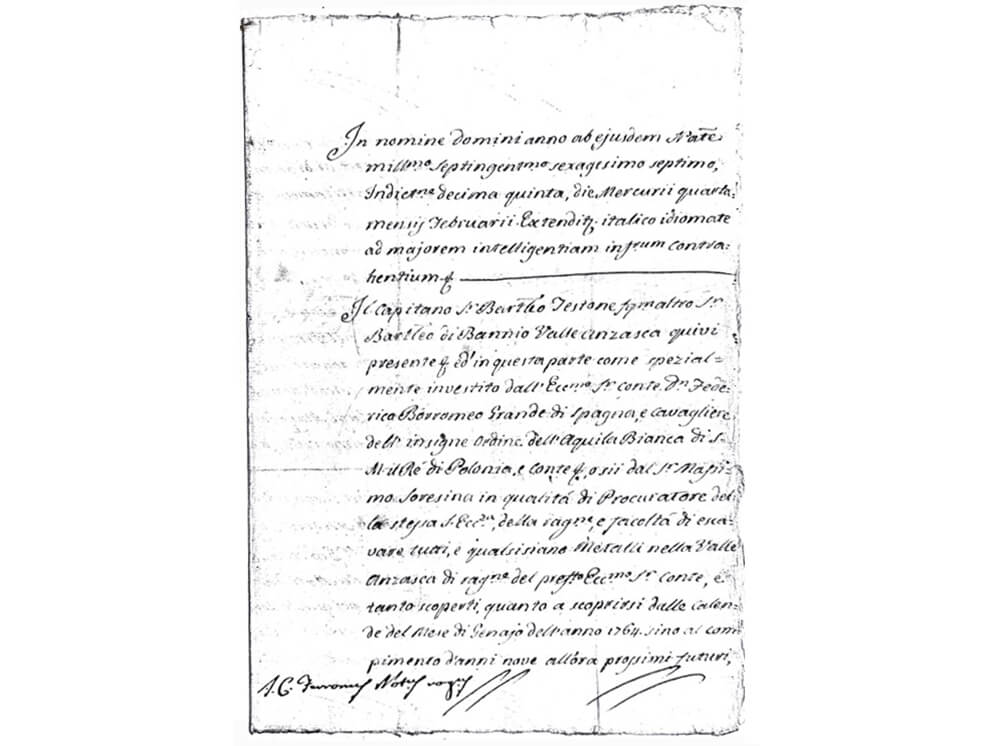 In nomine domini anno ab ejusdem Nate
millmo septingentmo sexagesimo septimo,
Indictne decima quinta, die Mercurii quarta
mensis Februarii. Extenditq; italico idiomate
ad majorem intelligentiam infrum contra=
hentium &
Il Capitano Sr. Bartleo Testone fqm altro Sr.
Bartleo di Bannio Valle anzasca quivi
presente & ed' in questa parte come spezial=
mente investito dall' Eccmo Sr. Conte Dn Fede=
rico Borromeo Grande di Spagna, e Cavagliere
dell' insigne ordine dell' Aquila Bianca di S.
M. il Ré di Polonia, e Conte &, o sii dal Sr. Massi=
mo Soresina in qualitá di Procuratore del
la stessa S. Ecca, della ragne, e facoltá di esca=
vare tutti, e qualsisiano Metalli nella Valle
Anzasca di ragne del prefto Eccmo Sr. Conte, e
tanto scoperti, quanto a scoprirsi dalle calen=
de del Mese di Genajo dell' anno 1764. sino al com
pimento d'anni nove allora prossimi futuri,